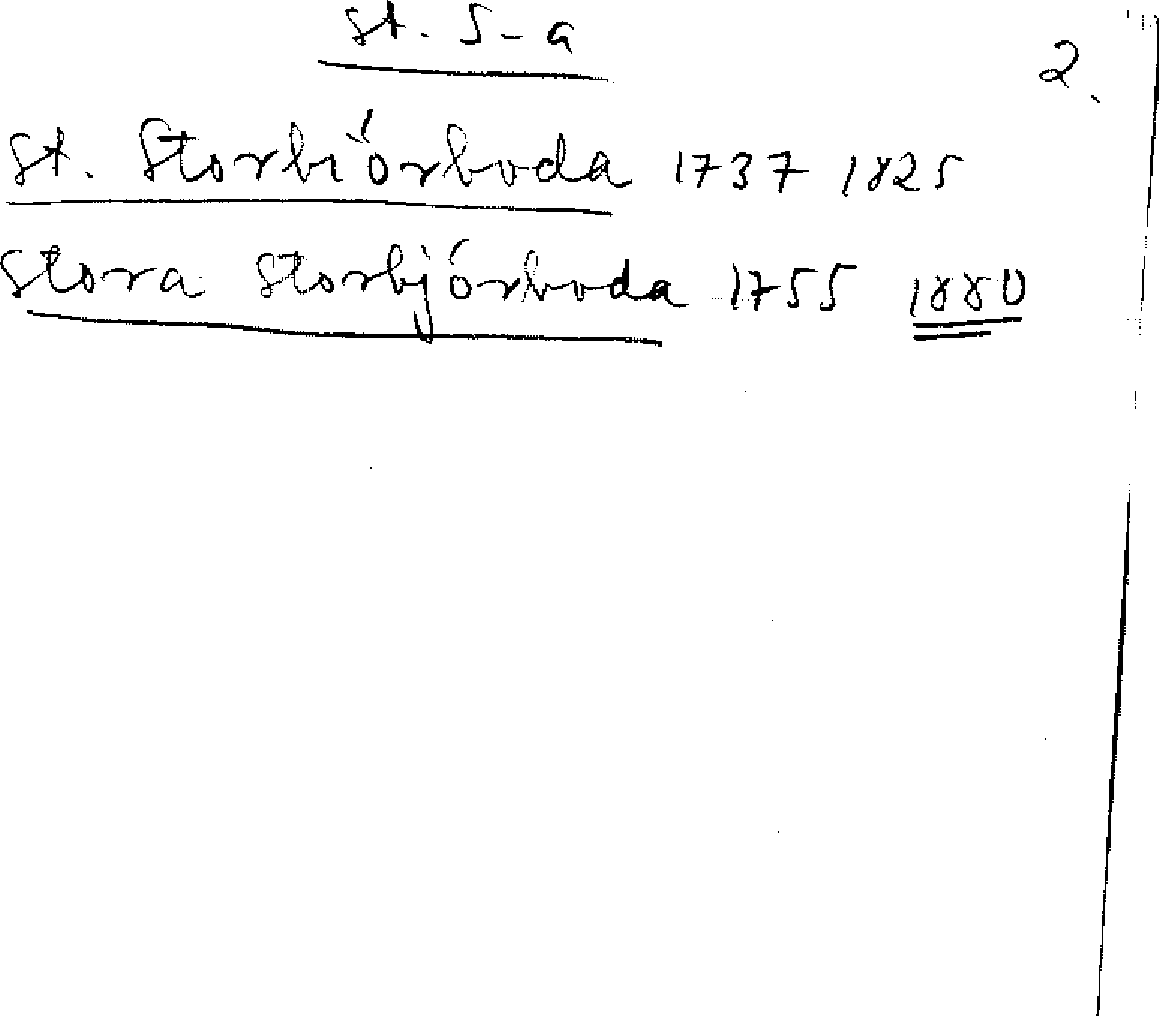 St. S-a
2.
St. Storbiörboda 1737 1825
Stora Storbjörboda 1755 1880